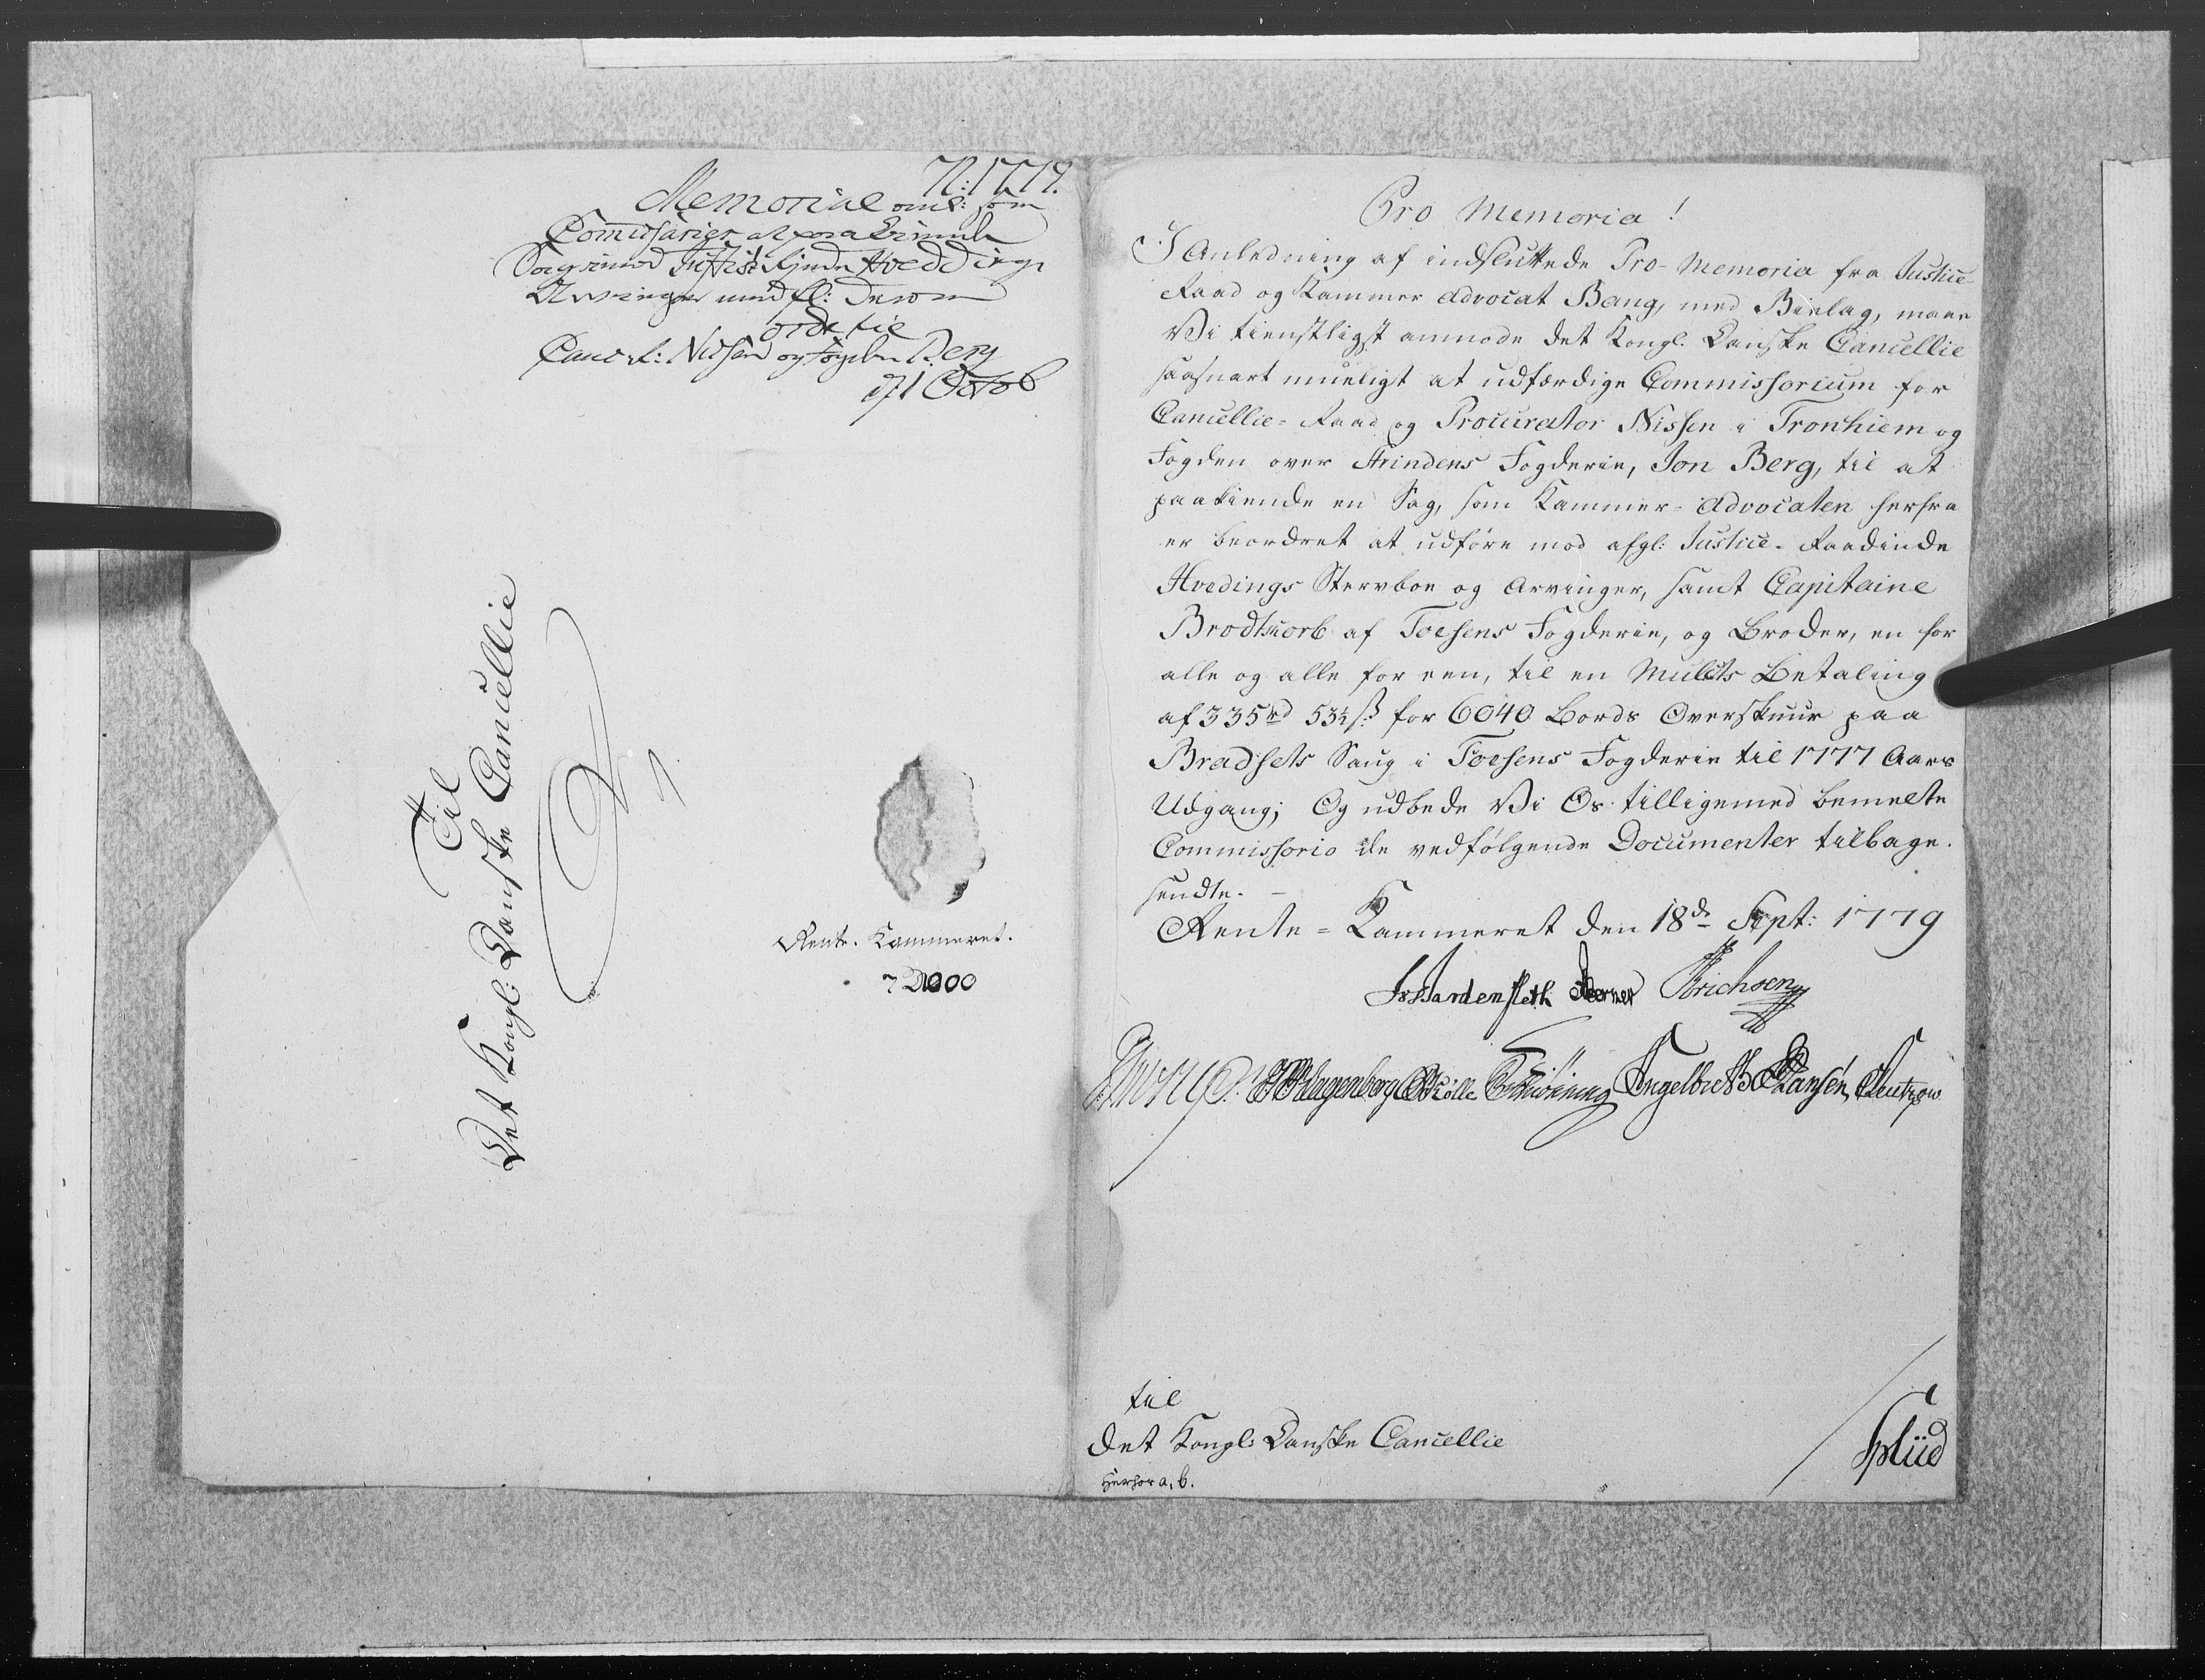 N: 1779.
Memorial
Commissarier at paakiende
Sag imod Justist: Hvedding
Arvinger med fl:
ordr til
Cancel: Nissen og fogden Berg
d 1 Octob
Til
Det Kongl: Danske Cancellie
Rente-Kammeret.
Pro Memoria!
I Anledning af indsluttede Pro-Memoria fra Justice-
Raad og Kammer Advocat Bang, med Bielag, maae
Vi tienstligst anmode det Kongl. Danske Cancellie
saasnart mueligt at udfærdige Commissorium for
Cancellie-Raad og Procurator Nissen i Tronhiem og
Fogden over Strindens Fogderie, Jon Berg, til at
paakiende en Sag, som Kammer-Advocaten herfra
er beordret at udføre mod afgl: Justice-Raadinde
Hvedings Stervboe og Arvinger, samt Capitaine
Brodtkorb af Foesens Fogderie, og Broder, en for
alle og alle for een, til en Mulcts Betaling
af 335 rd 53½ ß. for 6040 Bords Overskuur paa
Bradsets Saug i Foesens Fogderie til 1777 Aars
Udgang; Og udbede Vi Os tilligemed bemelte
Commissorio de vedfølgende Documenter tilbage-
sendte. -
Rente-Kammeret den 18de Sept: 1779
JvHardenfleth Berner Erichsen
Wagenberg Kølle Schiönning Engelbreth Hansén Lützow
til
Det Kongl: Danske Cancellie
Herhos a, b.
Spliid